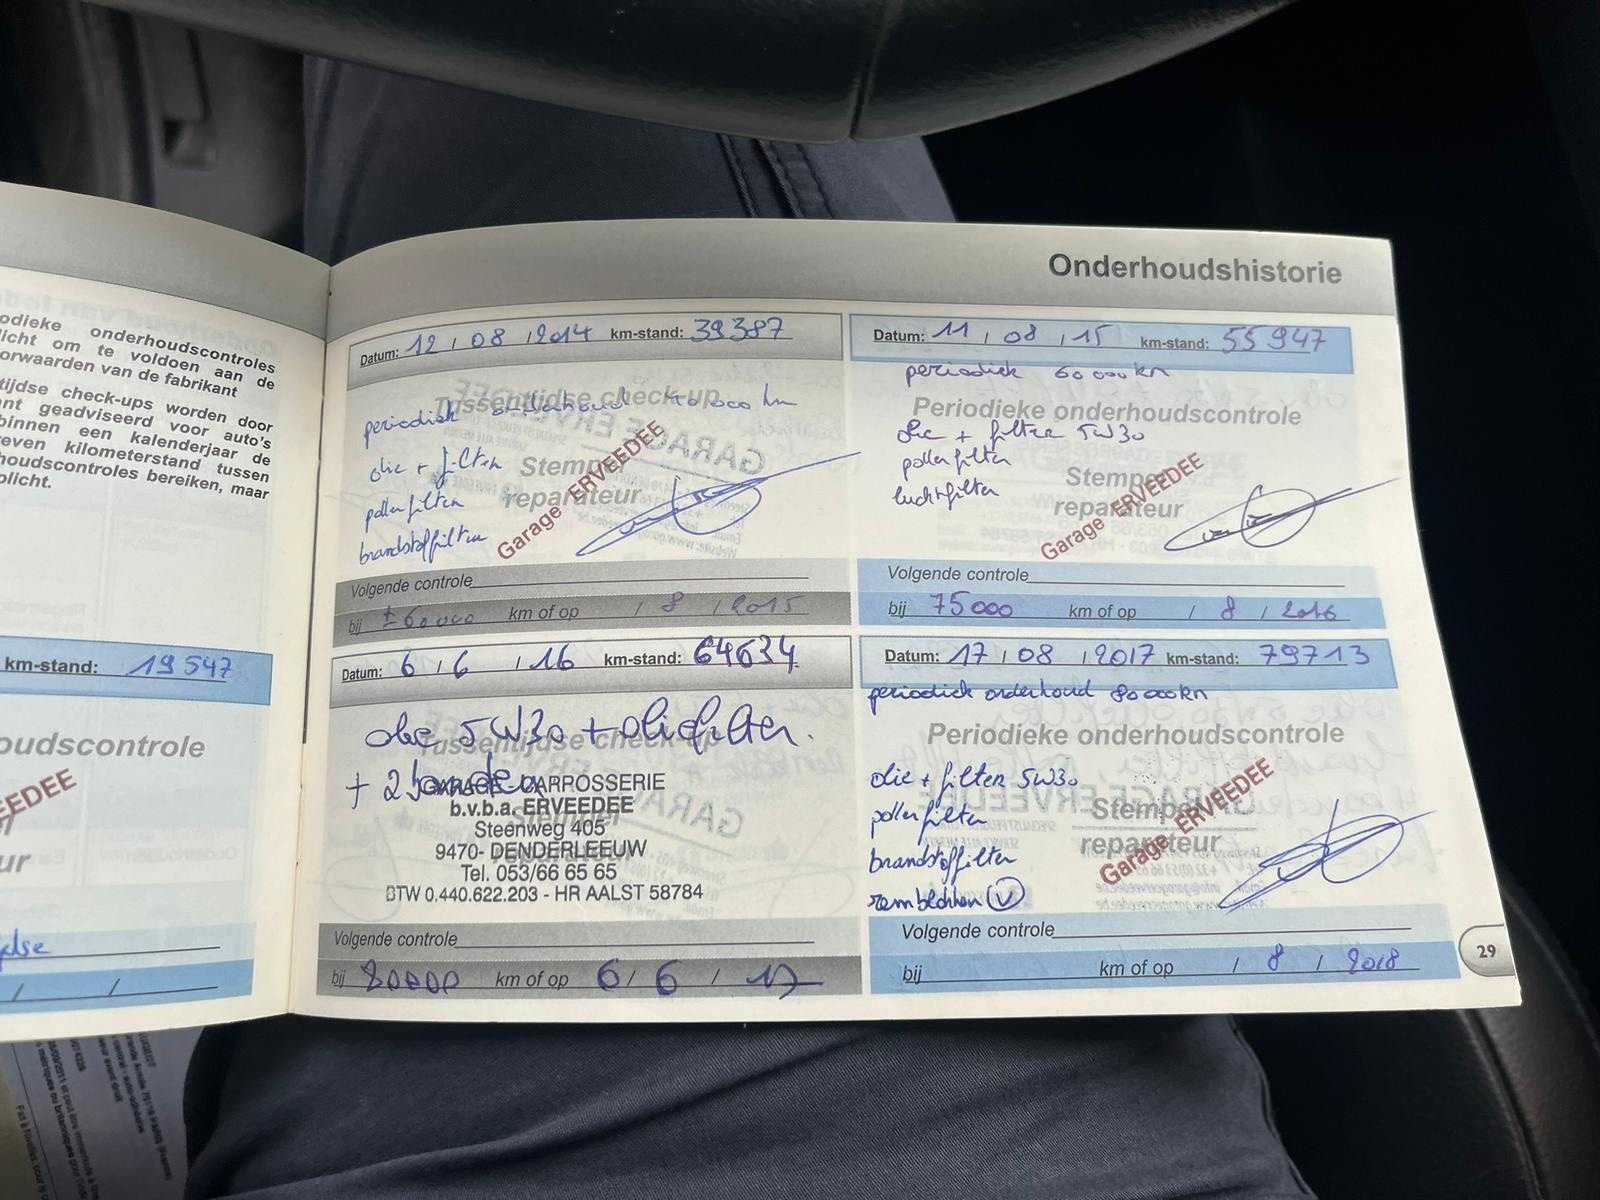 Onderhoudshistorie
odieke onderhoudscontroles
licht om te voldoen aan de
orwaarden van de fabrikant
tijdse check-ups worden door
nt geadviseerd voor auto's
binnen een kalenderjaar de
even kilometerstand tussen
houdscontroles bereiken, maar
plicht.
km-stand: 19547
oudscontrole
EEDEE
ur
Datum: 12 / 08 / 2014 km-stand: 39387
Tussentijdse check-up
periodiek onderhoud 40 000 km
olie + filter
Stempel
pollenfilter
reparateur
brandstoffilter
Garage ERVEEDEE
Volgende controle
bij ± 60000 km of op / 8 / 2015
Datum: 11 / 08 / 15 km-stand: 55947
periodiek 60 000 km
Periodieke onderhoudscontrole
olie + filter 5W30
pollenfilter
Stempel
luchtfilter
reparateur
Garage ERVEEDEE
Volgende controle
bij 75000 km of op / 8 / 2016
Datum: 6 / 6 / 16 km-stand: 64634
olie 5W30 + oliefilter.
Tussentijdse check-up
+ 2 banden
GARAGE - CARROSSERIE
b.v.b.a. ERVEEDEE
Steenweg 405
9470- DENDERLEEUW
Tel. 053/66 65 65
BTW 0.440.622.203 - HR AALST 58784
Volgende controle
bij 80000 km of op 6 / 6 / 17
Datum: 17 / 08 / 2017 km-stand: 79713
periodiek onderhoud 80 000 km
Periodieke onderhoudscontrole
olie + filter 5W30
pollenfilter
Stempel
brandstoffilter
reparateur
remblokken V
Garage ERVEEDEE
Volgende controle
bij km of op / 8 / 2018
29